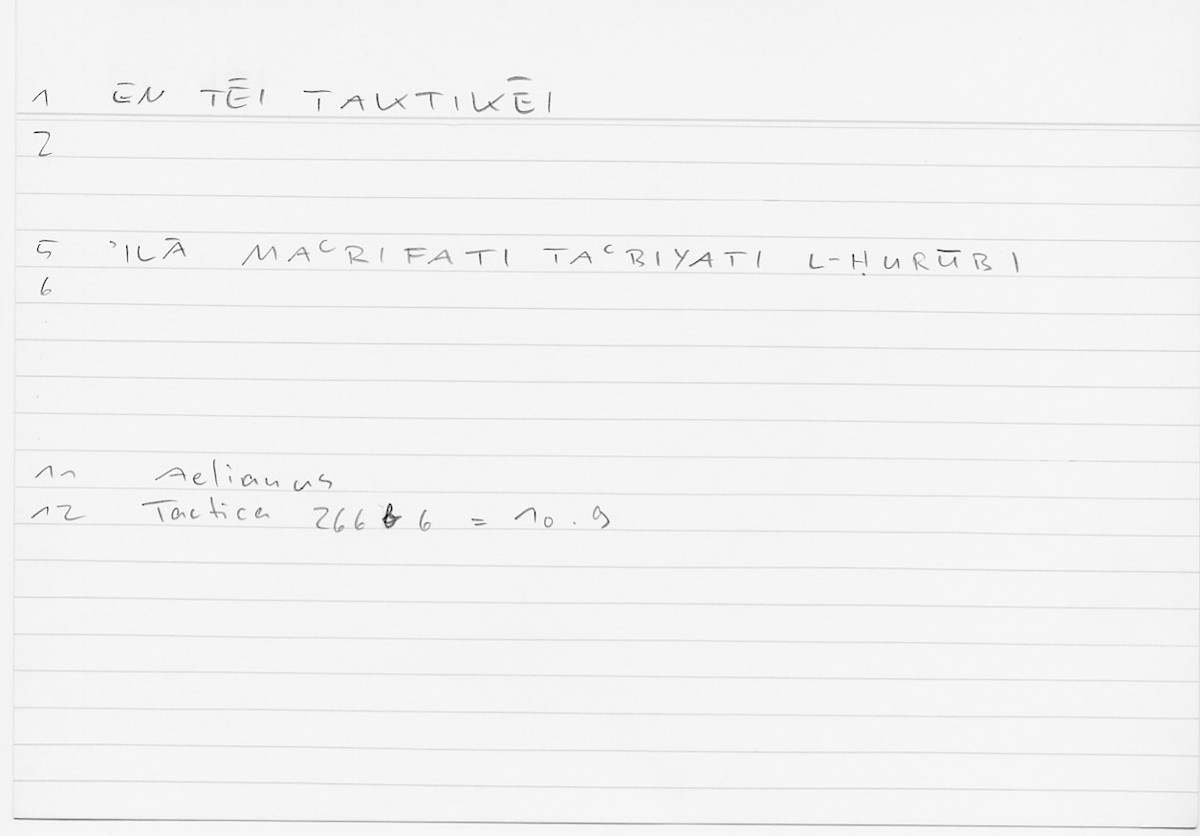 1 ĒN TĒI TAKTIKĒI
2
5 ʾILĀ MAʿRIFATI TAʿBIYATI L-ḤURŪBI
6
11 Aelianus
12 Tactica 266 6 = 10.9